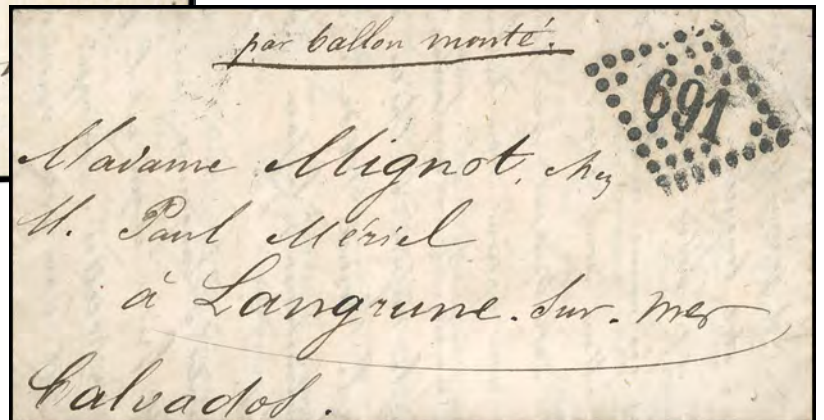 par ballon monté.
691
Madame Mignot, chez
M. Paul Mériel
à Langrune-sur-mer
Calvados.